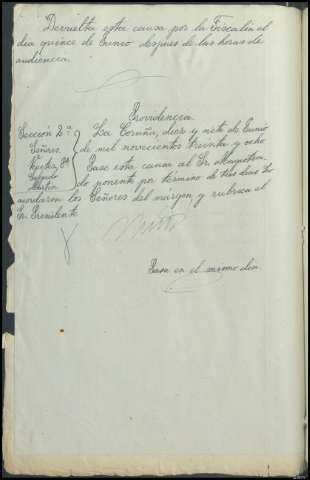 Devuelta esta causa por la Fiscalía el
día quince de Junio despues de las horas de
audiencia.
Providencia.
Sección 2.ª
Señores
Martin
La Coruña, diez y siete de Junio
de mil novecientos treinta y ocho
Pase esta causa al Sr. Magistra-
do ponente por término de tres dias. Lo
acordaron los Señores del márgen y rubrica el
Sr. Presidente
Pasa en el mismo dia.